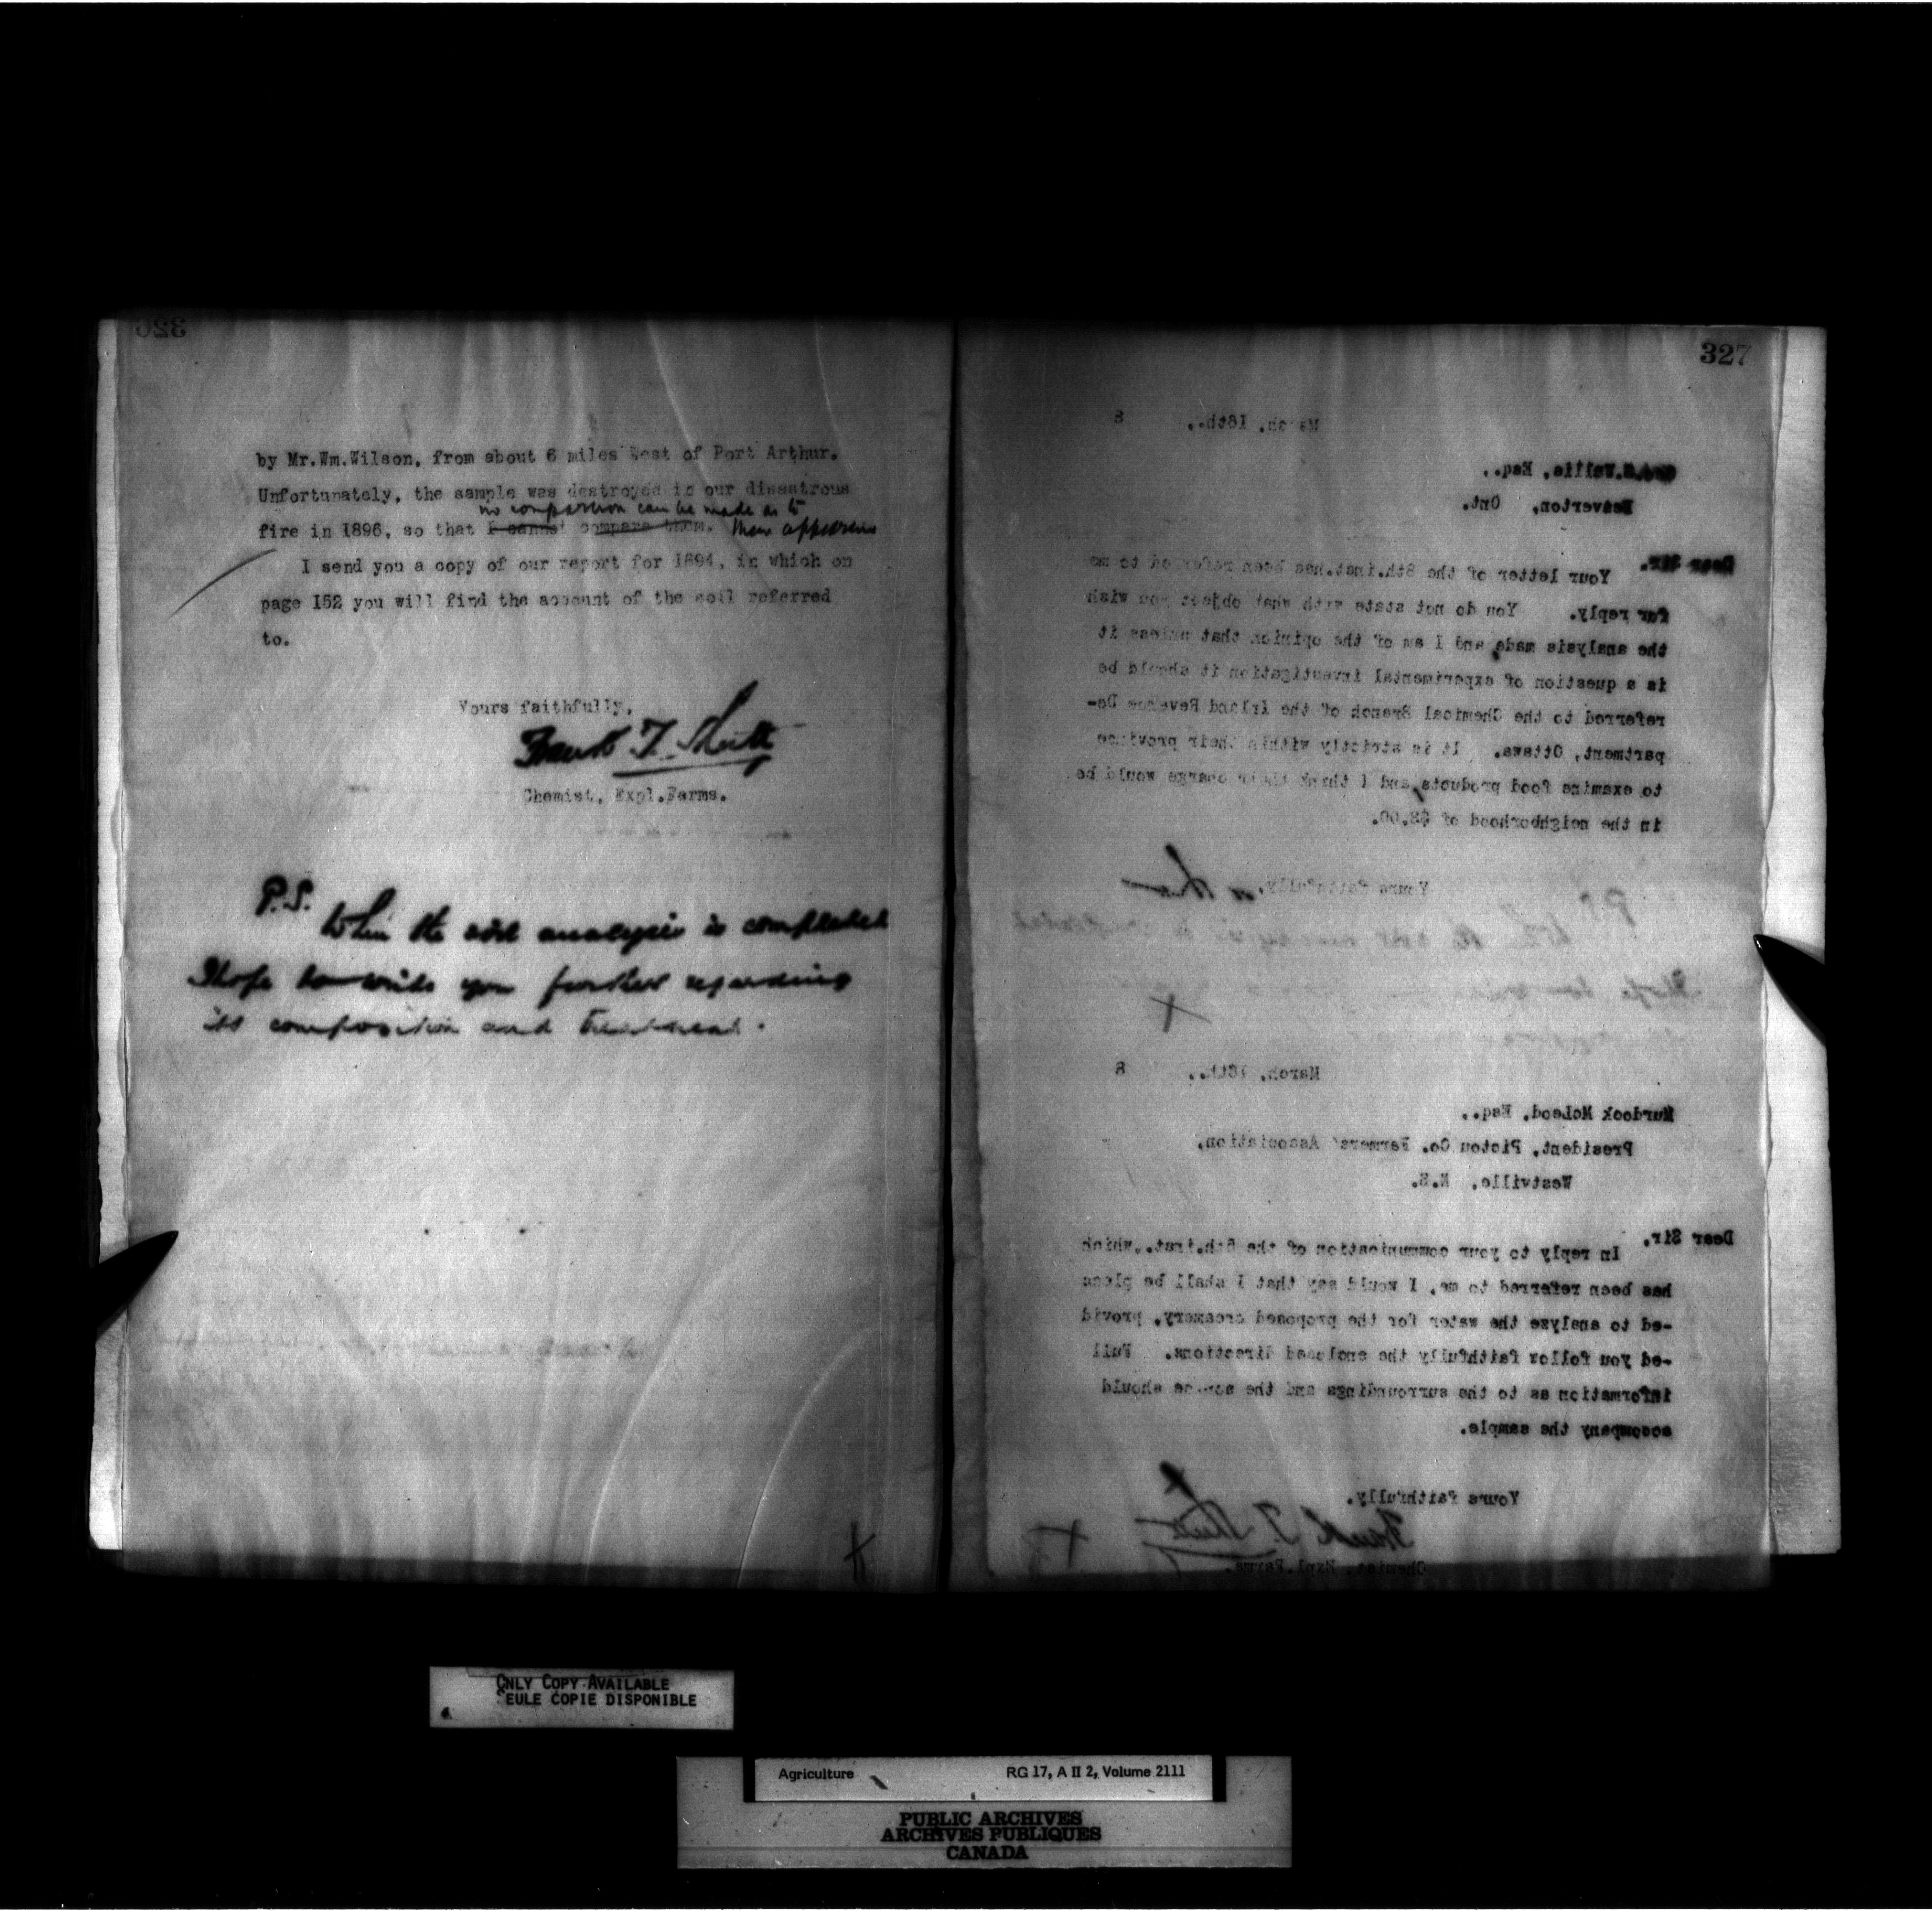 326
by Mr.Wm.Wilson, from about 6 miles West of Port Arthur.
Unfortunately, the sample was destroyed in our disastrous
no comparison can be made as to
fire in 1896, so that I cannot compare them. their appearance
I send you a copy of our report for 1894, in which on
page 152 you will find the account of the soil referred
to.
Yours faithfully,
Frank T. Shutt
Chemist, Expl.Farms.
P.S.
When the soil analysis is completed
I hope to write you further regarding
its composition and treatment.
327
March, 16th., 8
Wallis, Esq.,
Beaverton, Ont.
Dear Sir,
Your letter of the 8th.inst.has been referred to me
for reply. You do not state with what object you wish
the analysis made, and I am of the opinion that unless it
is a question of experimental investigation it should be
referred to the Chemical Branch of the Inland Revenue De-
partment, Ottawa. It is strictly within their province
to examine food products, and I think their charge would be
in the neighborhood of $8.00.
Yours faithfully,
March, 16th., 8
Murdock McLeod, Esq.,
President, Pictou Co. Farmers' Association,
Westville, N.S.
Dear Sir,
In reply to your communication of the 6th.inst., which
has been referred to me, I would say that I shall be pleas
-ed to analyze the water for the proposed creamery, provid
-ed you follow faithfully the enclosed directions. Full
information as to the surroundings and the source should
accompany the sample.
Yours faithfully,
Frank T. Shutt
Chemist, Expl.Farms.
ONLY COPY AVAILABLE
EULE COPIE DISPONIBLE
Agriculture RG 17, A II 2, Volume 2111
PUBLIC ARCHIVES
ARCHIVES PUBLIQUES
CANADA